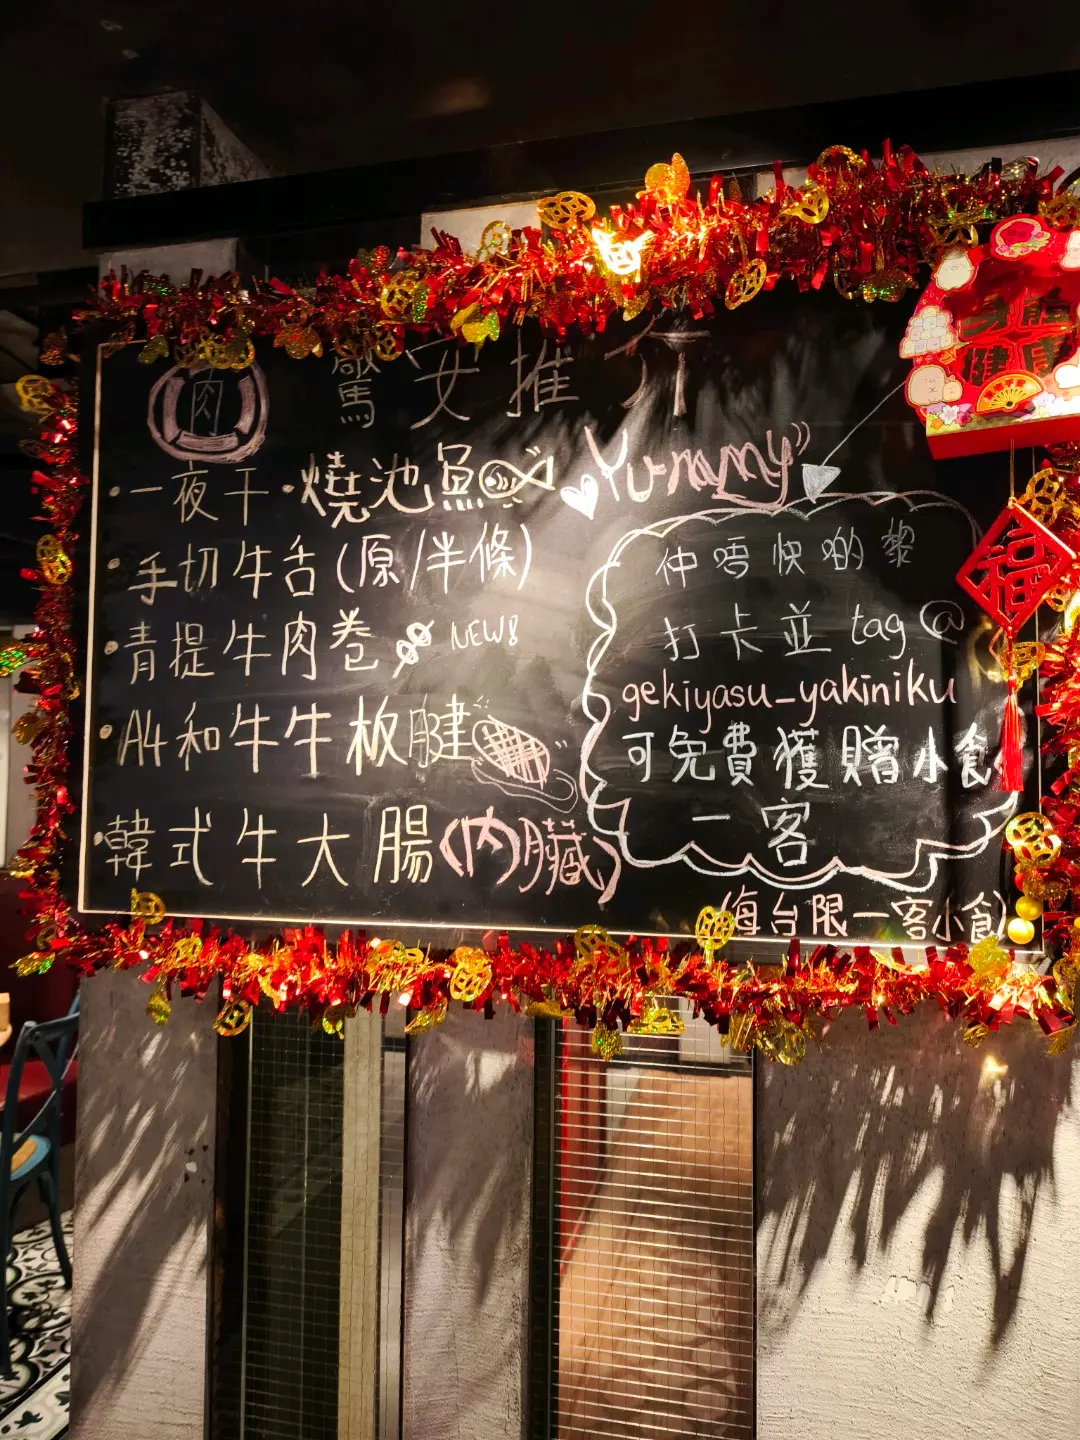 肉 驚安推介
・一夜干・燒池魚
Yummy
・手切牛舌(原/半條)
・青提牛肉卷 NEW!
・A4和牛牛板腱
・韓式牛大腸(內臟)
仲唔快啲黎
打卡並 tag @
gekiyasu_yakiniku
可免費獲贈小食
一客
(每台限一客小食)
身體
健康
福